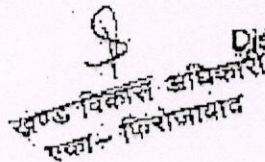 Dis
खण्ड विकास अधिकारी
एका - फिरोजाबाद